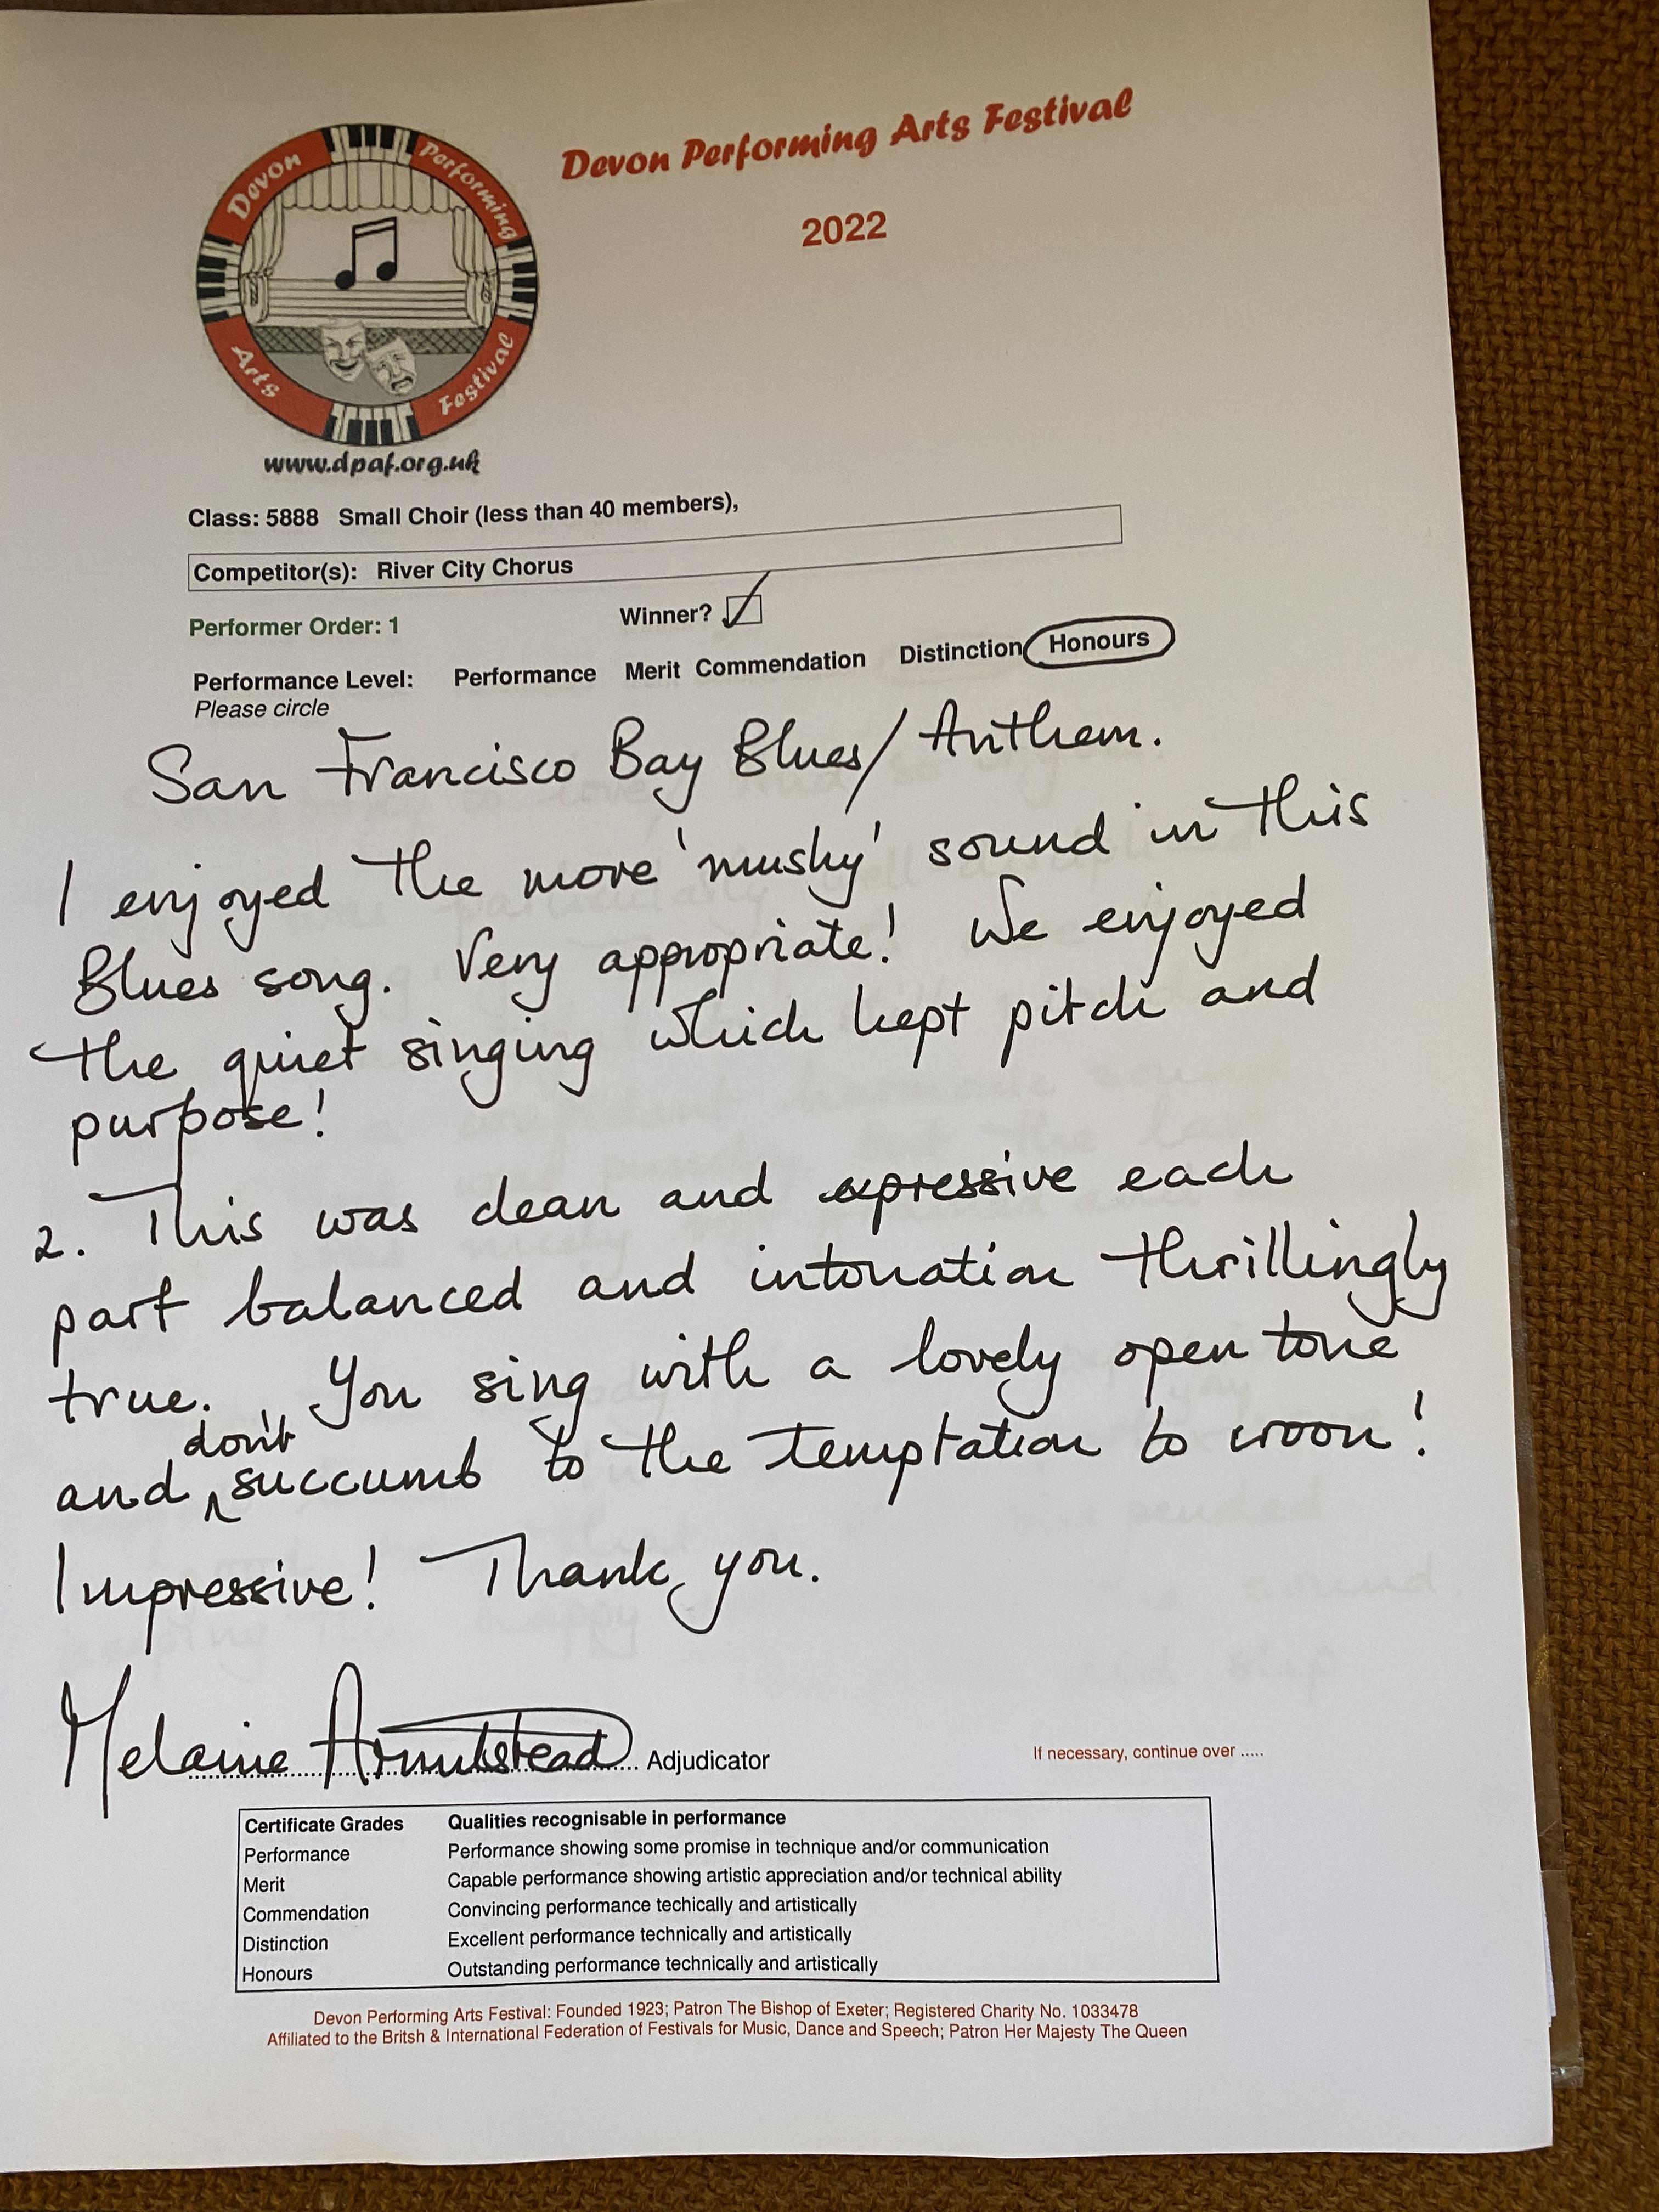 Devon Performing Arts Festival
2022
Devon Performing
Arts Festival
www.dpaf.org.uk
Class: 5888 Small Choir (less than 40 members),
Competitor(s): River City Chorus
Performer Order: 1 Winner?
Performance Level: Performance Merit Commendation Distinction Honours
Please circle
San Francisco Bay Blues/ Anthem.
I enjoyed the more 'mushy' sound in this
Blues song. Very appropriate! We enjoyed
the quiet singing which kept pitch and
purpose!
2. This was clean and expressive each
part balanced and intonation thrillingly
true. You sing with a lovely open tone
and don't succumb to the temptation to croon!
Impressive! Thank you.
Melanie Armitstead Adjudicator
If necessary, continue over .....
Certificate Grades Qualities recognisable in performance
Performance Performance showing some promise in technique and/or communication
Merit Capable performance showing artistic appreciation and/or technical ability
Commendation Convincing performance techically and artistically
Distinction Excellent performance technically and artistically
Honours Outstanding performance technically and artistically
Devon Performing Arts Festival: Founded 1923; Patron The Bishop of Exeter; Registered Charity No. 1033478
Affiliated to the Britsh & International Federation of Festivals for Music, Dance and Speech; Patron Her Majesty The Queen